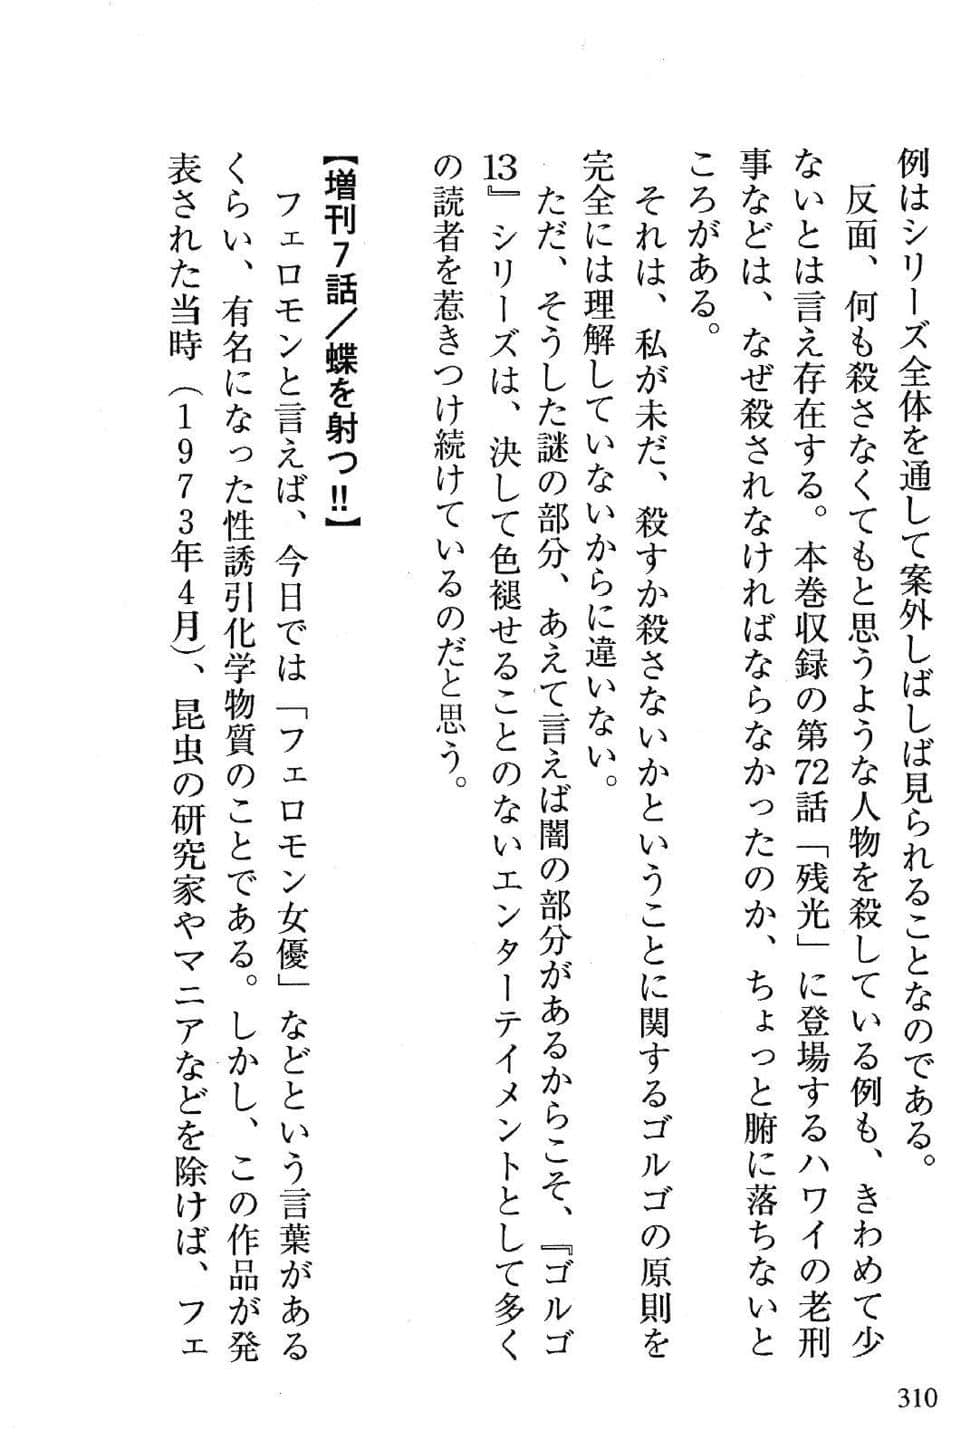 例はシリーズ全体を通して案外しばしば見られることなのである。
反面、何も殺さなくてもと思うような人物を殺している例も、きわめて少
ないとは言え存在する。本巻収録の第72話「残光」に登場するハワイの老刑
事などは、なぜ殺されなければならなかったのか、ちょっと腑に落ちないと
ころがある。
それは、私が未だ、殺すか殺さないかということに関するゴルゴの原則を
完全には理解していないからに違いない。
ただ、そうした謎の部分、あえて言えば闇の部分があるからこそ、『ゴルゴ
13』シリーズは、決して色褪せることのないエンターテイメントとして多く
の読者を惹きつけ続けているのだと思う。
【増刊7話/蝶を射つ!!】
フェロモンと言えば、今日では「フェロモン女優」などという言葉がある
くらい、有名になった性誘引化学物質のことである。しかし、この作品が発
表された当時(1973年4月)、昆虫の研究家やマニアなどを除けば、フェ
310